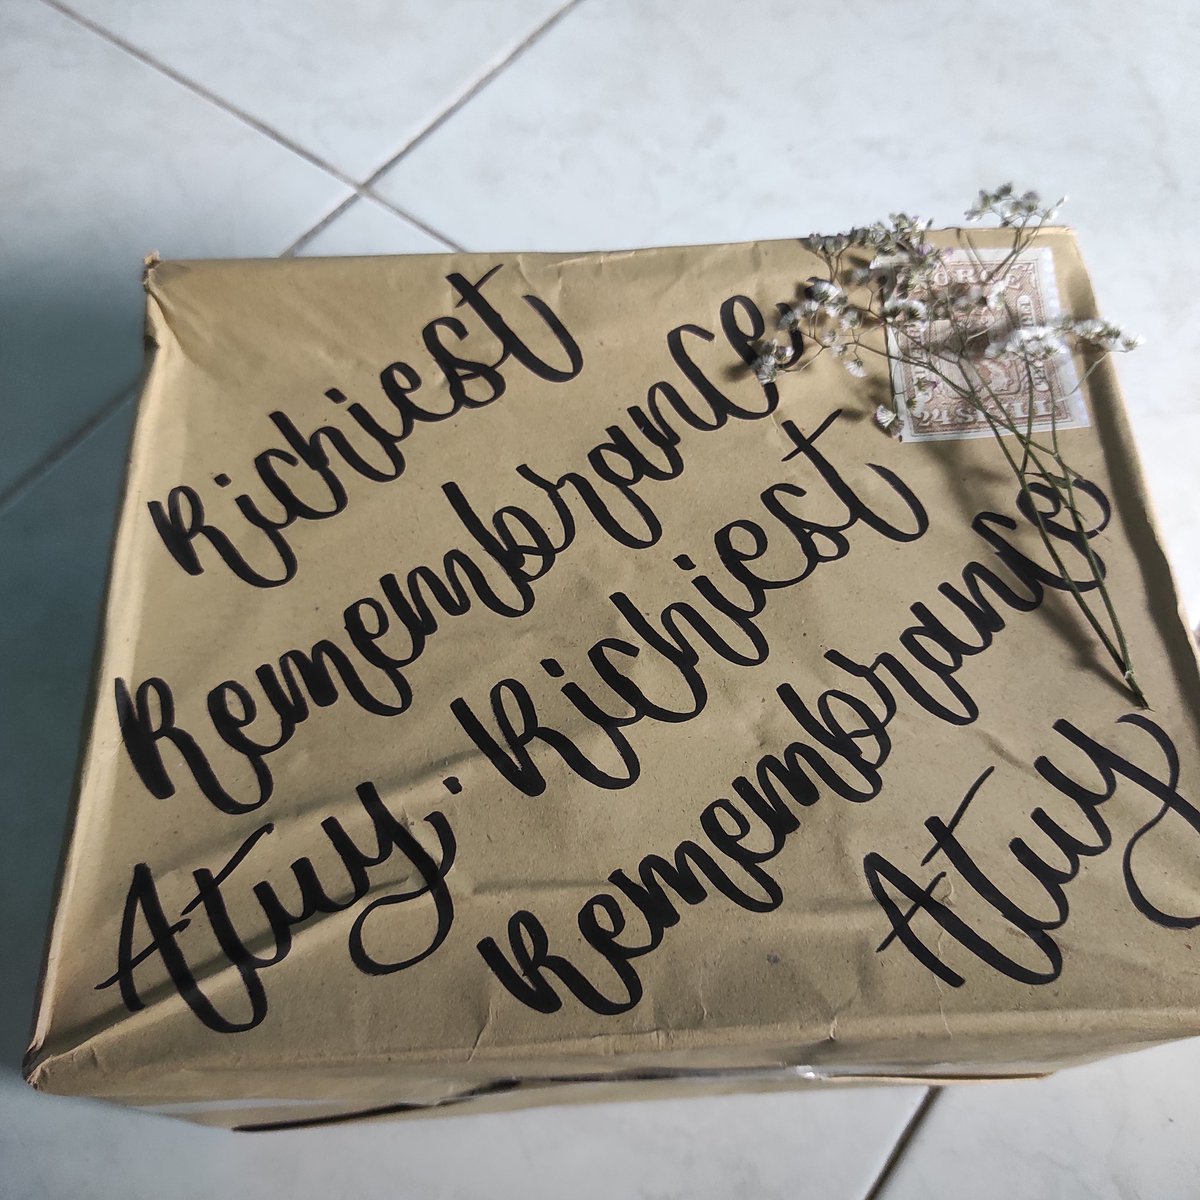 Richiest
Remembrance
Atuy. Richiest
Remembrance
Atuy